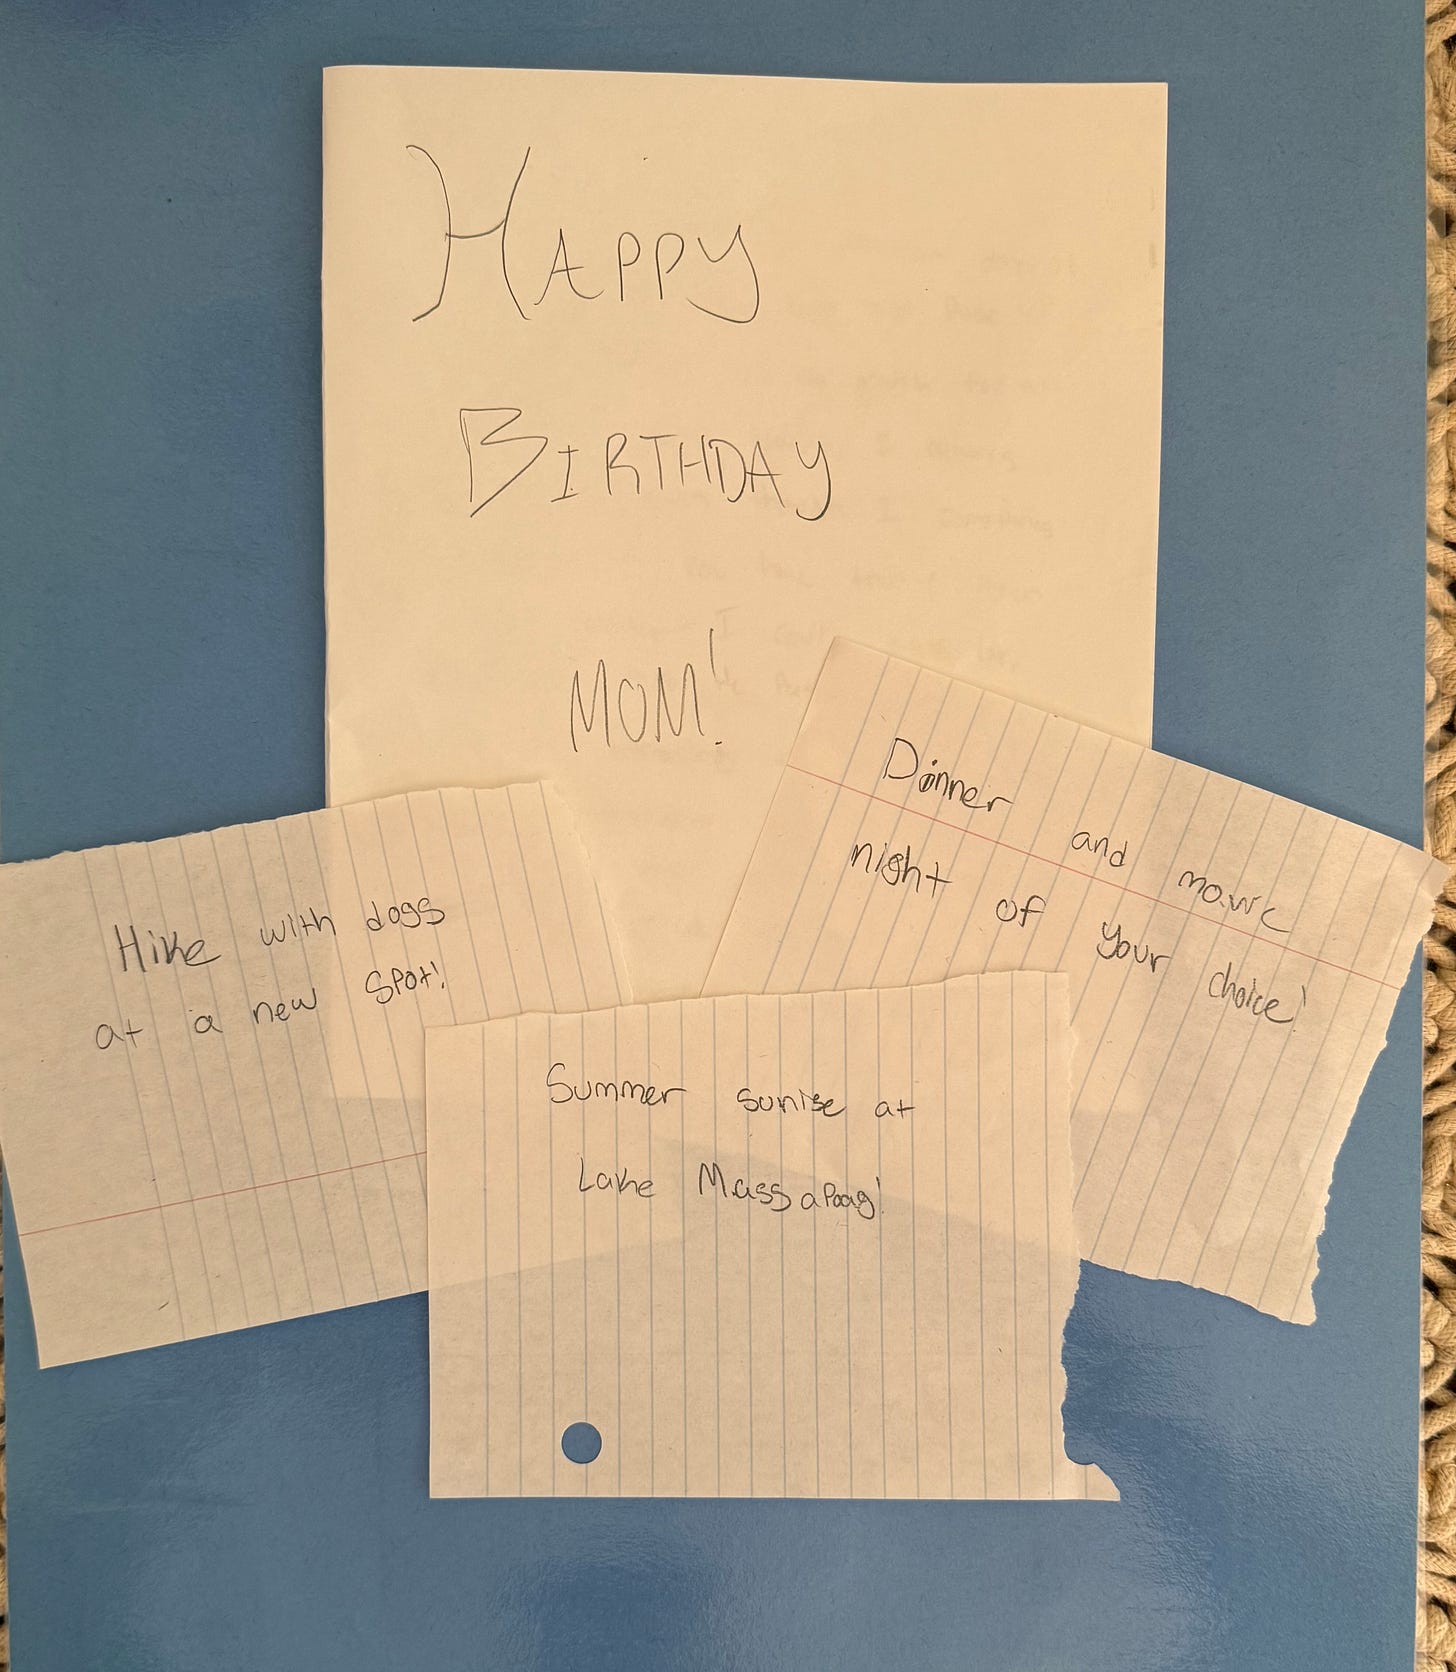 HAPPY
BIRTHDAY
MOM!
Hike with dogs
at a new spot!
Dinner and movie
night of your choice!
Summer sunrise at
Lake Massapoag!